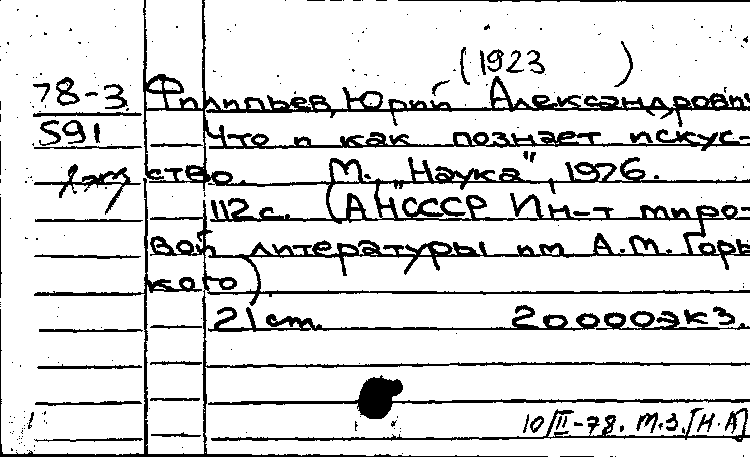 (1923 )
78-3 Филипьев, Юрий Александрович
591 Что и как познает искус-
1 экз ство. М., „Наука", 1976.
112 с. (АНСССР Ин-т миро-
вой литературы им А.М. Горь
кого)
21 cm. 20000экз.
10/II-78. т.з. [Н.А]